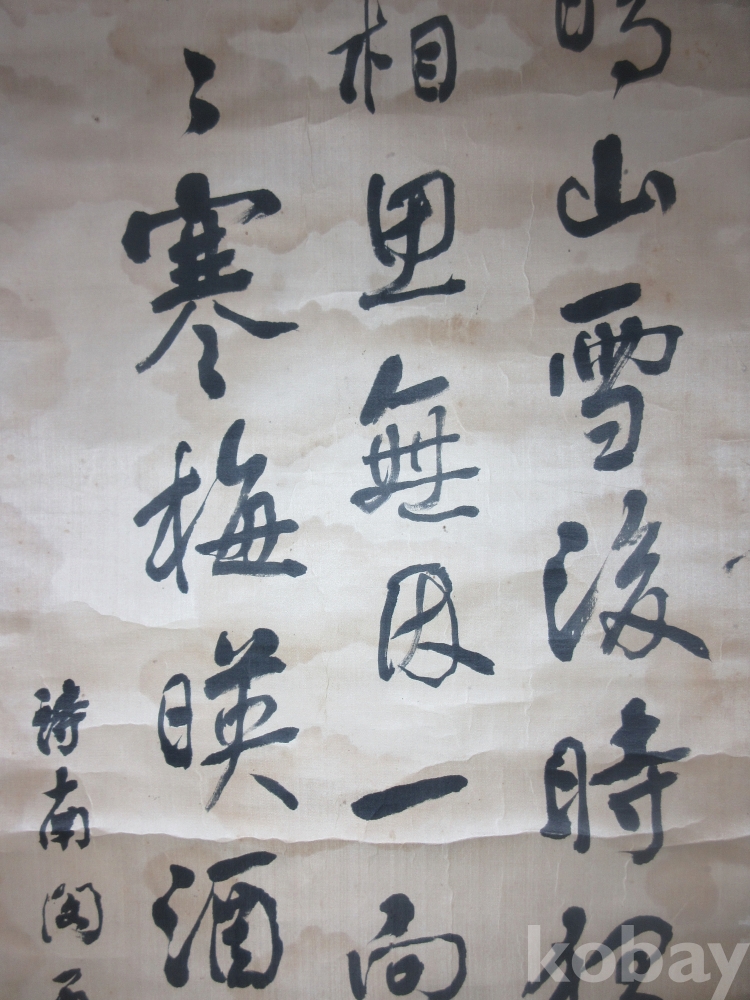 明山雪後時
相思無因一向
々寒梅暎酒
南